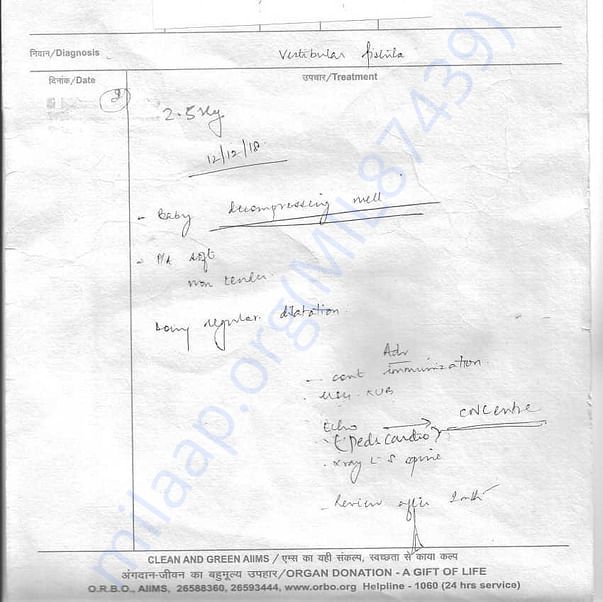 निदान/Diagnosis Vestibular fistula
दिनांक/Date उपचार/Treatment
2.5 kg
12/12/18
- Baby decompressing well
- P/A soft
non tender
Doing regular dilatation
Adv
- cont immunization
- USG KUB
Echo → CN Centre
(Peds cardio)
- Xray L-S spine
- Review after
milaap.org(MIL87439)
CLEAN AND GREEN AIIMS / एम्स का यही संकल्प, स्वच्छता से काया कल्प
अंगदान-जीवन का बहुमूल्य उपहार/ORGAN DONATION - A GIFT OF LIFE
O.R.B.O., AIIMS, 26588360, 26593444, www.orbo.org Helpline - 1060 (24 hrs service)